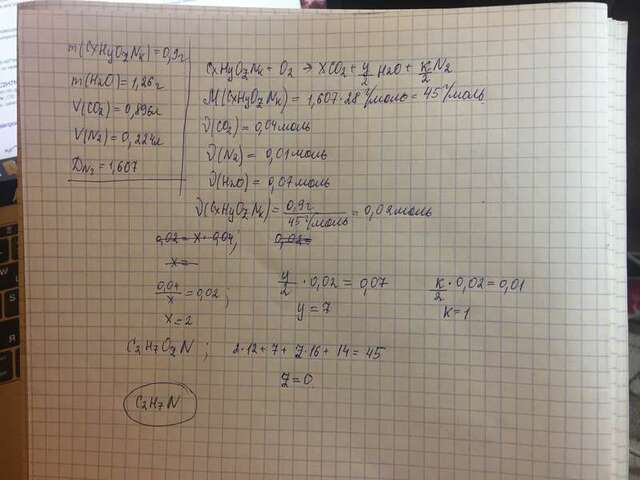 m(CxHyOzNk) = 0,9г
m(H2O) = 1,26г
V(CO2) = 0,896л
V(N2) = 0,224л
DN2 = 1,607
CxHyOzNk + O2 → XCO2 + y/2 H2O + K/2 N2
M(CxHyOzNk) = 1,607·28 г/моль = 45 г/моль
ν(CO2) = 0,04моль
ν(N2) = 0,01моль
ν(H2O) = 0,07моль
ν(CxHyOzNk) = 0,9г / 45 г/моль = 0,02моль
0,04/x = 0,02; y/2 · 0,02 = 0,07 K/2 · 0,02 = 0,01
x = 2 y = 7 K = 1
C2H7OZN; 2·12 + 7 + Z·16 + 14 = 45
Z = 0
C2H7N